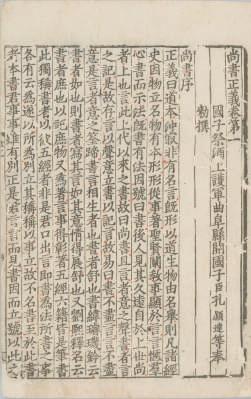 尚書正義卷第一
國子祭酒上護軍曲阜縣開國子臣孔穎達等奉
勑撰
尚書序
正義曰道本沖寂非有名言既形以道生物由名舉則凡諸經
史因物立名物有本形形從事著聖賢闡教事顯於言言愜羣
心書而示法既書有法因號曰書後人見其久遠自於上世尚
者上也言此上代以來之書故曰尚書且言者意之聲書者言
之記是故存言以聲意立書以記言故易曰書不盡言言不盡
意是言者意之筌蹄書言相生者也書者舒也書緯璿璣鈐云
書者如也則書者寫其言如其意情得展舒也又劉熙釋名云
書者庶也以記庶物又為著言事得彰著五經六籍皆是筆書
此獨稱書者以彼五經者非是君口出言即書為法所書之事
各有云為遂以所為別立其稱稱以事立故不名書至於此書
者本書君事事雖有別正是君言言而見書因而立號以此之